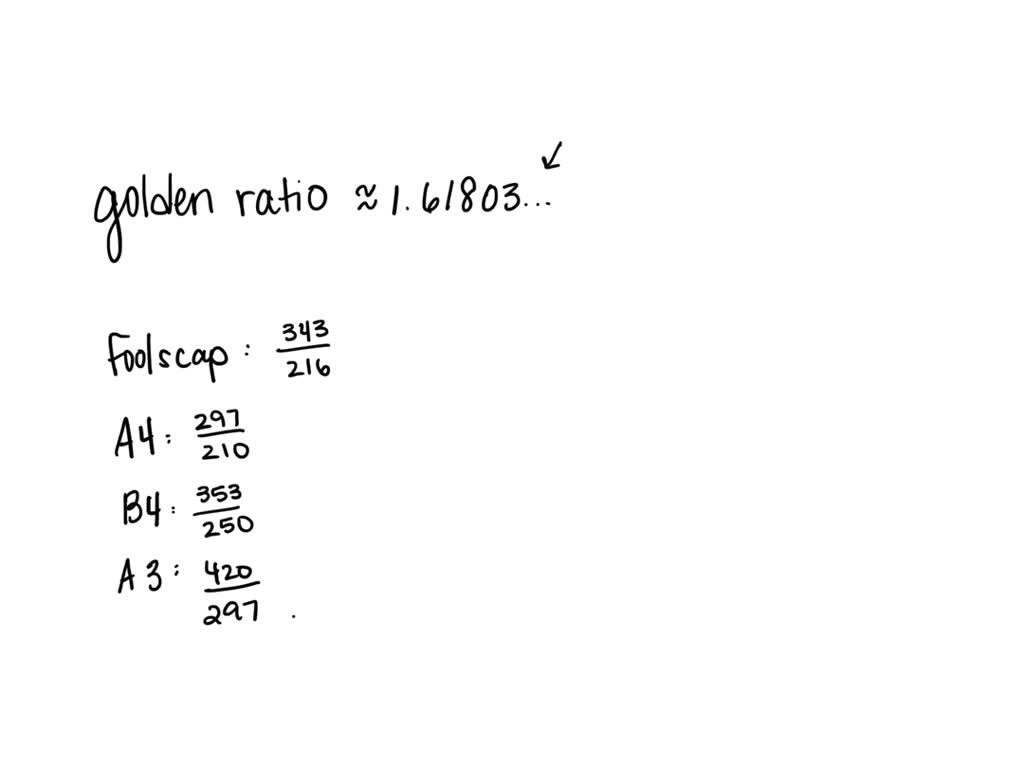 golden ratio ≈ 1.61803...
Foolscap: 343/216
A4: 297/210
B4: 353/250
A3: 420/297